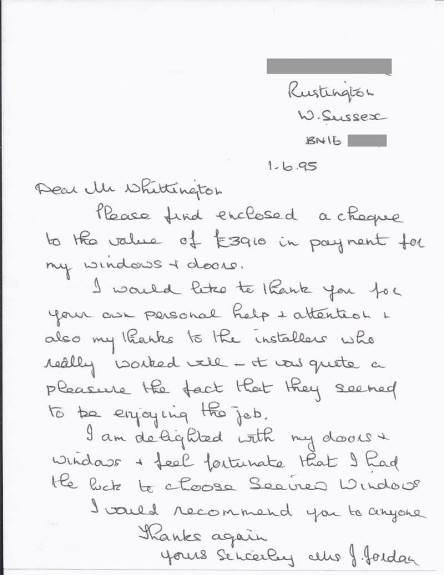 Rustington
W. Sussex
BN16
1-6.95
Dear Mr Whittington
Please find enclosed a cheque
to the value of £3910 in payment for
my windows + doors.
I would like to thank you for
your own personal help + attention +
also my thanks to the installers who
really worked well - it was quite a
pleasure the fact that they seemed
to be enjoying the job.
I am delighted with my doors +
windows + feel fortunate that I had
the luck to choose Windows
I would recommend you to anyone
Thanks again
Yours Sincerley Mrs J. Jordan